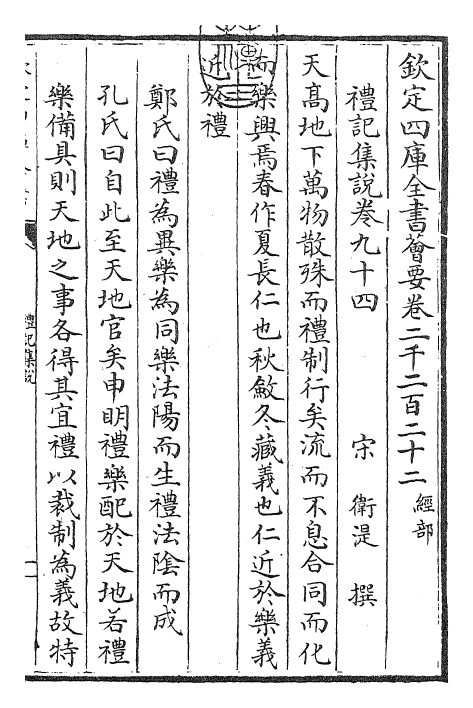 欽定四庫全書薈要卷二千二百二十二 經部
禮記集說卷九十四 宋 衛湜 撰
天髙地下萬物散殊而禮制行矣流而不息合同而化
而樂興焉春作夏長仁也秋斂冬藏義也仁近於樂義
近於禮
鄭氏曰禮為異樂為同樂法陽而生禮法陰而成
孔氏曰自此至天地官矣申明禮樂配於天地若禮
樂備具則天地之事各得其宜禮以裁制為義故特
禮記集說
一